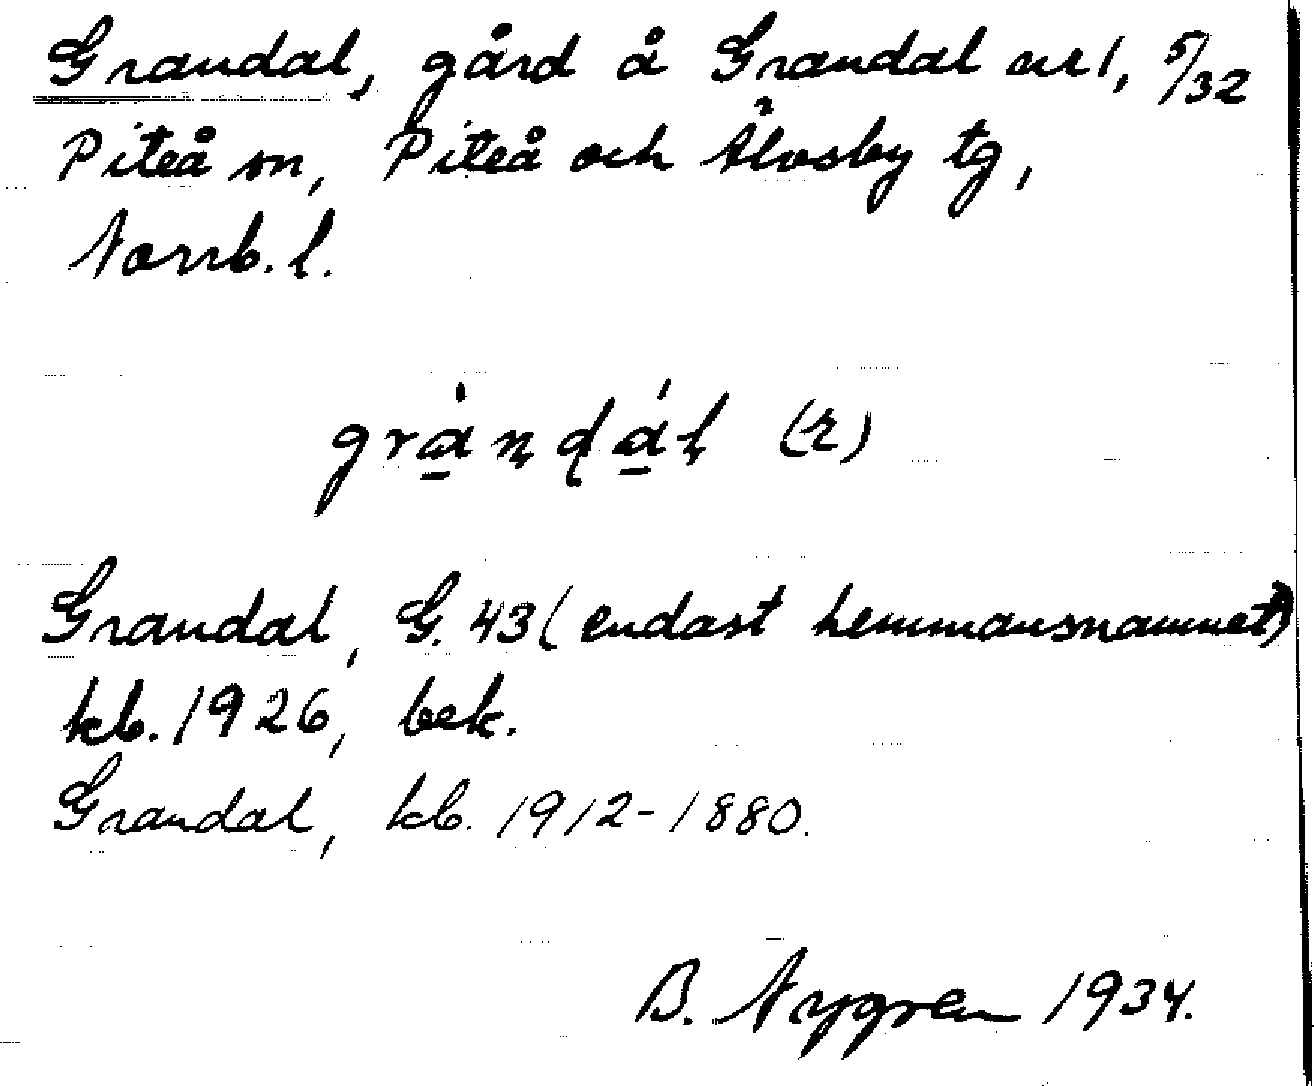 Grandal, gård å Grandal nr 1, 5/32
Piteå sn, Piteå och Älvsby tg,
Norrb. l.
grandal (r)
Grandal, G. 43 (endast hemmansnamnet)
kb. 1926, bek.
Grandal, kb. 1912-1880.
B. Nygren 1934.